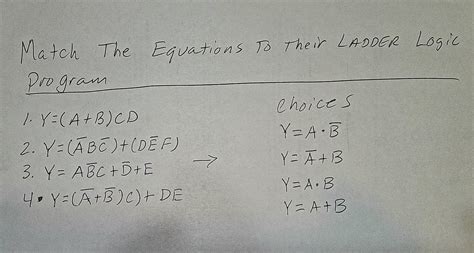 Match The Equations To Their LADDER Logic
Program
1. Y=(A+B)CD
2. Y=(A̅BC̅)+(DE̅F)
3. Y= AB̅C+D̅+E
4• Y=(A̅+B̅)C)+DE
→
Choices
Y=A·B̅
Y=A̅+B
Y=A·B
Y=A+B